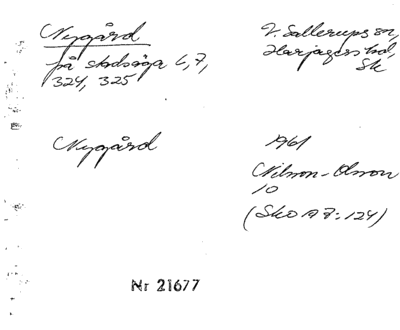 Nygård
på stadsäga 6, 7,
324, 325
V. Sallerups sn,
Harjagers hd,
Sk
Nygård
1961
Nilsson-Olsson
10
(Sko A 7:124)
Nr 21677